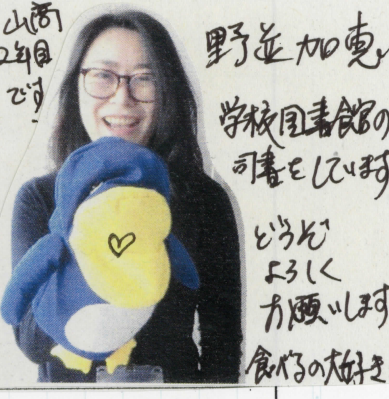 山商
2年目
です!
野並加恵。
学校図書館の
司書をしています
どうぞ
よろしく
お願いします
食べるの大好き